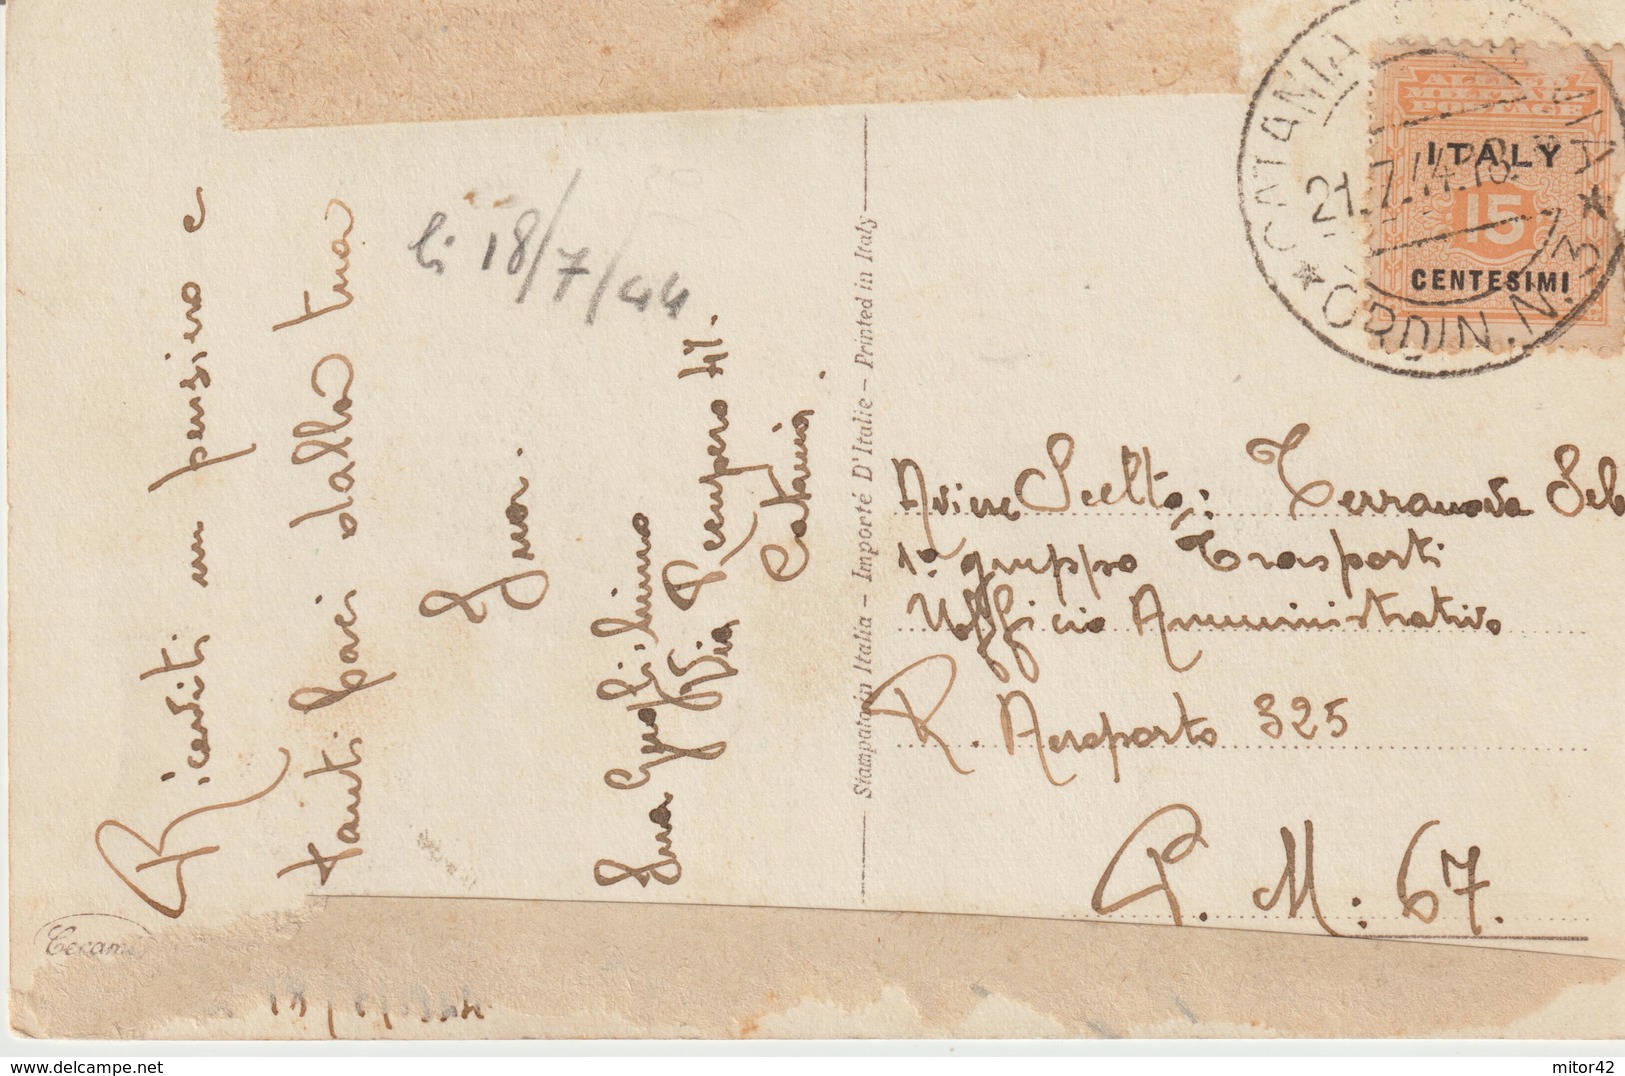 Ricordati un pensiero e
tanti baci dalla tua
Inna.
li 18/7/44
Inna Guglielmino
Via Plempero 41.
Catania.
Stampato in Italia – Importé D'Italie – Printed in Italy
CATANIA
21.7.44.18
ORDIN. N. 3
ALLIED
MILITARY
POSTAGE
ITALY
15
CENTESIMI
Aviere Scelto: Terranova Seb
1° gruppo Trasporti
Ufficio Amministrativo
R. Aeroporto 325
P. M. 67.
delcampe.net
mitor42